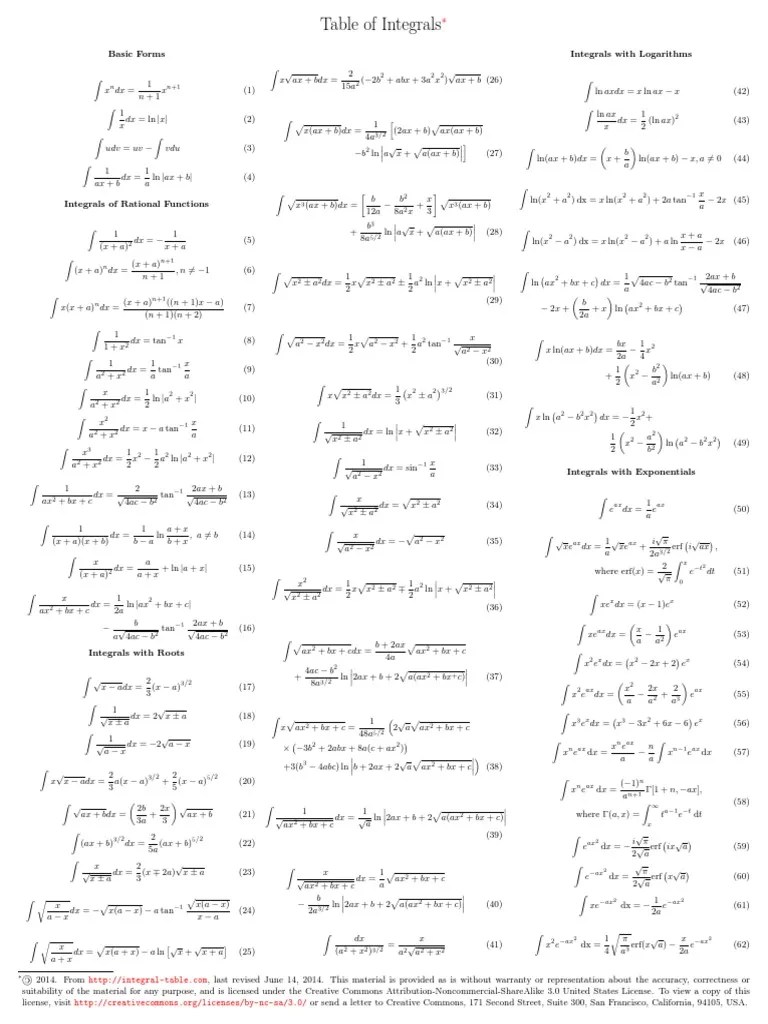 Table of Integrals*
Basic Forms
∫ xⁿdx = 1/(n + 1) xⁿ⁺¹ (1)
∫ 1/x dx = ln |x| (2)
∫ udv = uv − ∫ vdu (3)
∫ 1/(ax + b) dx = 1/a ln |ax + b| (4)
Integrals of Rational Functions
∫ 1/(x + a)² dx = − 1/(x + a) (5)
∫ (x + a)ⁿdx = (x + a)ⁿ⁺¹/(n + 1), n ≠ −1 (6)
∫ x(x + a)ⁿdx = (x + a)ⁿ⁺¹((n + 1)x − a)/((n + 1)(n + 2)) (7)
∫ 1/(1 + x²) dx = tan⁻¹ x (8)
∫ 1/(a² + x²) dx = 1/a tan⁻¹ x/a (9)
∫ x/(a² + x²) dx = 1/2 ln |a² + x²| (10)
∫ x²/(a² + x²) dx = x − a tan⁻¹ x/a (11)
∫ x³/(a² + x²) dx = 1/2 x² − 1/2 a² ln |a² + x²| (12)
∫ 1/(ax² + bx + c) dx = 2/√(4ac − b²) tan⁻¹ (2ax + b)/√(4ac − b²) (13)
∫ 1/((x + a)(x + b)) dx = 1/(b − a) ln (a + x)/(b + x), a ≠ b (14)
∫ x/(x + a)² dx = a/(a + x) + ln |a + x| (15)
∫ x/(ax² + bx + c) dx = 1/(2a) ln |ax² + bx + c|
− b/(a√(4ac − b²)) tan⁻¹ (2ax + b)/√(4ac − b²) (16)
Integrals with Roots
∫ √(x − a)dx = 2/3 (x − a)^(3/2) (17)
∫ 1/√(x ± a) dx = 2√(x ± a) (18)
∫ 1/√(a − x) dx = −2√(a − x) (19)
∫ x√(x − a)dx = 2/3 a(x − a)^(3/2) + 2/5 (x − a)^(5/2) (20)
∫ √(ax + b)dx = (2b/3a + 2x/3) √(ax + b) (21)
∫ (ax + b)^(3/2)dx = 2/(5a) (ax + b)^(5/2) (22)
∫ x/√(x ± a) dx = 2/3 (x ∓ 2a)√(x ± a) (23)
∫ √(x/(a − x)) dx = −√(x(a − x)) − a tan⁻¹ √(x(a − x))/(x − a) (24)
∫ √(x/(a + x)) dx = √(x(a + x)) − a ln [√x + √(x + a)] (25)
∫ x√(ax + b)dx = 2/(15a²) (−2b² + abx + 3a²x²)√(ax + b) (26)
∫ √(x(ax + b))dx = 1/(4a^(3/2)) [(2ax + b)√(ax(ax + b))
−b² ln |a√x + √(a(ax + b))|] (27)
∫ √(x³(ax + b))dx = [b/(12a) − b²/(8a²x) + x/3] √(x³(ax + b))
+ b³/(8a^(5/2)) ln |a√x + √(a(ax + b))| (28)
∫ √(x² ± a²)dx = 1/2 x√(x² ± a²) ± 1/2 a² ln |x + √(x² ± a²)|
(29)
∫ √(a² − x²)dx = 1/2 x√(a² − x²) + 1/2 a² tan⁻¹ x/√(a² − x²)
(30)
∫ x√(x² ± a²)dx = 1/3 (x² ± a²)^(3/2) (31)
∫ 1/√(x² ± a²) dx = ln |x + √(x² ± a²)| (32)
∫ 1/√(a² − x²) dx = sin⁻¹ x/a (33)
∫ x/√(x² ± a²) dx = √(x² ± a²) (34)
∫ x/√(a² − x²) dx = −√(a² − x²) (35)
∫ x²/√(x² ± a²) dx = 1/2 x√(x² ± a²) ∓ 1/2 a² ln |x + √(x² ± a²)|
(36)
∫ √(ax² + bx + c)dx = (b + 2ax)/(4a) √(ax² + bx + c)
+ (4ac − b²)/(8a^(3/2)) ln |2ax + b + 2√(a(ax² + bx⁺c))| (37)
∫ x√(ax² + bx + c) = 1/(48a^(5/2)) (2√a√(ax² + bx + c)
× (−3b² + 2abx + 8a(c + ax²))
+3(b³ − 4abc) ln |b + 2ax + 2√a√(ax² + bx + c)|) (38)
∫ 1/√(ax² + bx + c) dx = 1/√a ln |2ax + b + 2√(a(ax² + bx + c))|
(39)
∫ x/√(ax² + bx + c) dx = 1/a √(ax² + bx + c)
− b/(2a^(3/2)) ln |2ax + b + 2√(a(ax² + bx + c))| (40)
∫ dx/(a² + x²)^(3/2) = x/(a²√(a² + x²)) (41)
Integrals with Logarithms
∫ ln axdx = x ln ax − x (42)
∫ ln ax/x dx = 1/2 (ln ax)² (43)
∫ ln(ax + b)dx = (x + b/a) ln(ax + b) − x, a ≠ 0 (44)
∫ ln(x² + a²) dx = x ln(x² + a²) + 2a tan⁻¹ x/a − 2x (45)
∫ ln(x² − a²) dx = x ln(x² − a²) + a ln (x + a)/(x − a) − 2x (46)
∫ ln (ax² + bx + c) dx = 1/a √(4ac − b²) tan⁻¹ (2ax + b)/√(4ac − b²)
− 2x + (b/2a + x) ln (ax² + bx + c) (47)
∫ x ln(ax + b)dx = bx/2a − 1/4 x²
+ 1/2 (x² − b²/a²) ln(ax + b) (48)
∫ x ln (a² − b²x²) dx = −1/2 x²+
1/2 (x² − a²/b²) ln (a² − b²x²) (49)
Integrals with Exponentials
∫ e^(ax)dx = 1/a e^(ax) (50)
∫ √x e^(ax)dx = 1/a √x e^(ax) + i√π/(2a^(3/2)) erf (i√(ax)),
where erf(x) = 2/√π ∫₀ˣ e^(−t²)dt (51)
∫ xeˣdx = (x − 1)eˣ (52)
∫ xe^(ax)dx = (x/a − 1/a²) e^(ax) (53)
∫ x²eˣdx = (x² − 2x + 2) eˣ (54)
∫ x²e^(ax)dx = (x²/a − 2x/a² + 2/a³) e^(ax) (55)
∫ x³eˣdx = (x³ − 3x² + 6x − 6) eˣ (56)
∫ xⁿe^(ax) dx = xⁿe^(ax)/a − n/a ∫ xⁿ⁻¹e^(ax)dx (57)
∫ xⁿe^(ax) dx = (−1)ⁿ/aⁿ⁺¹ Γ[1 + n, −ax],
where Γ(a, x) = ∫ₓ^∞ t^(a−1)e^(−t) dt (58)
∫ e^(ax²) dx = − i√π/(2√a) erf (ix√a) (59)
∫ e^(−ax²) dx = √π/(2√a) erf (x√a) (60)
∫ xe^(−ax²) dx = − 1/(2a) e^(−ax²) (61)
∫ x²e^(−ax²) dx = 1/4 √(π/a³) erf(x√a) − x/(2a) e^(−ax²) (62)
* © 2014. From http://integral-table.com, last revised June 14, 2014. This material is provided as is without warranty or representation about the accuracy, correctness or
suitability of the material for any purpose, and is licensed under the Creative Commons Attribution-Noncommercial-ShareAlike 3.0 United States License. To view a copy of this
license, visit http://creativecommons.org/licenses/by-nc-sa/3.0/ or send a letter to Creative Commons, 171 Second Street, Suite 300, San Francisco, California, 94105, USA.